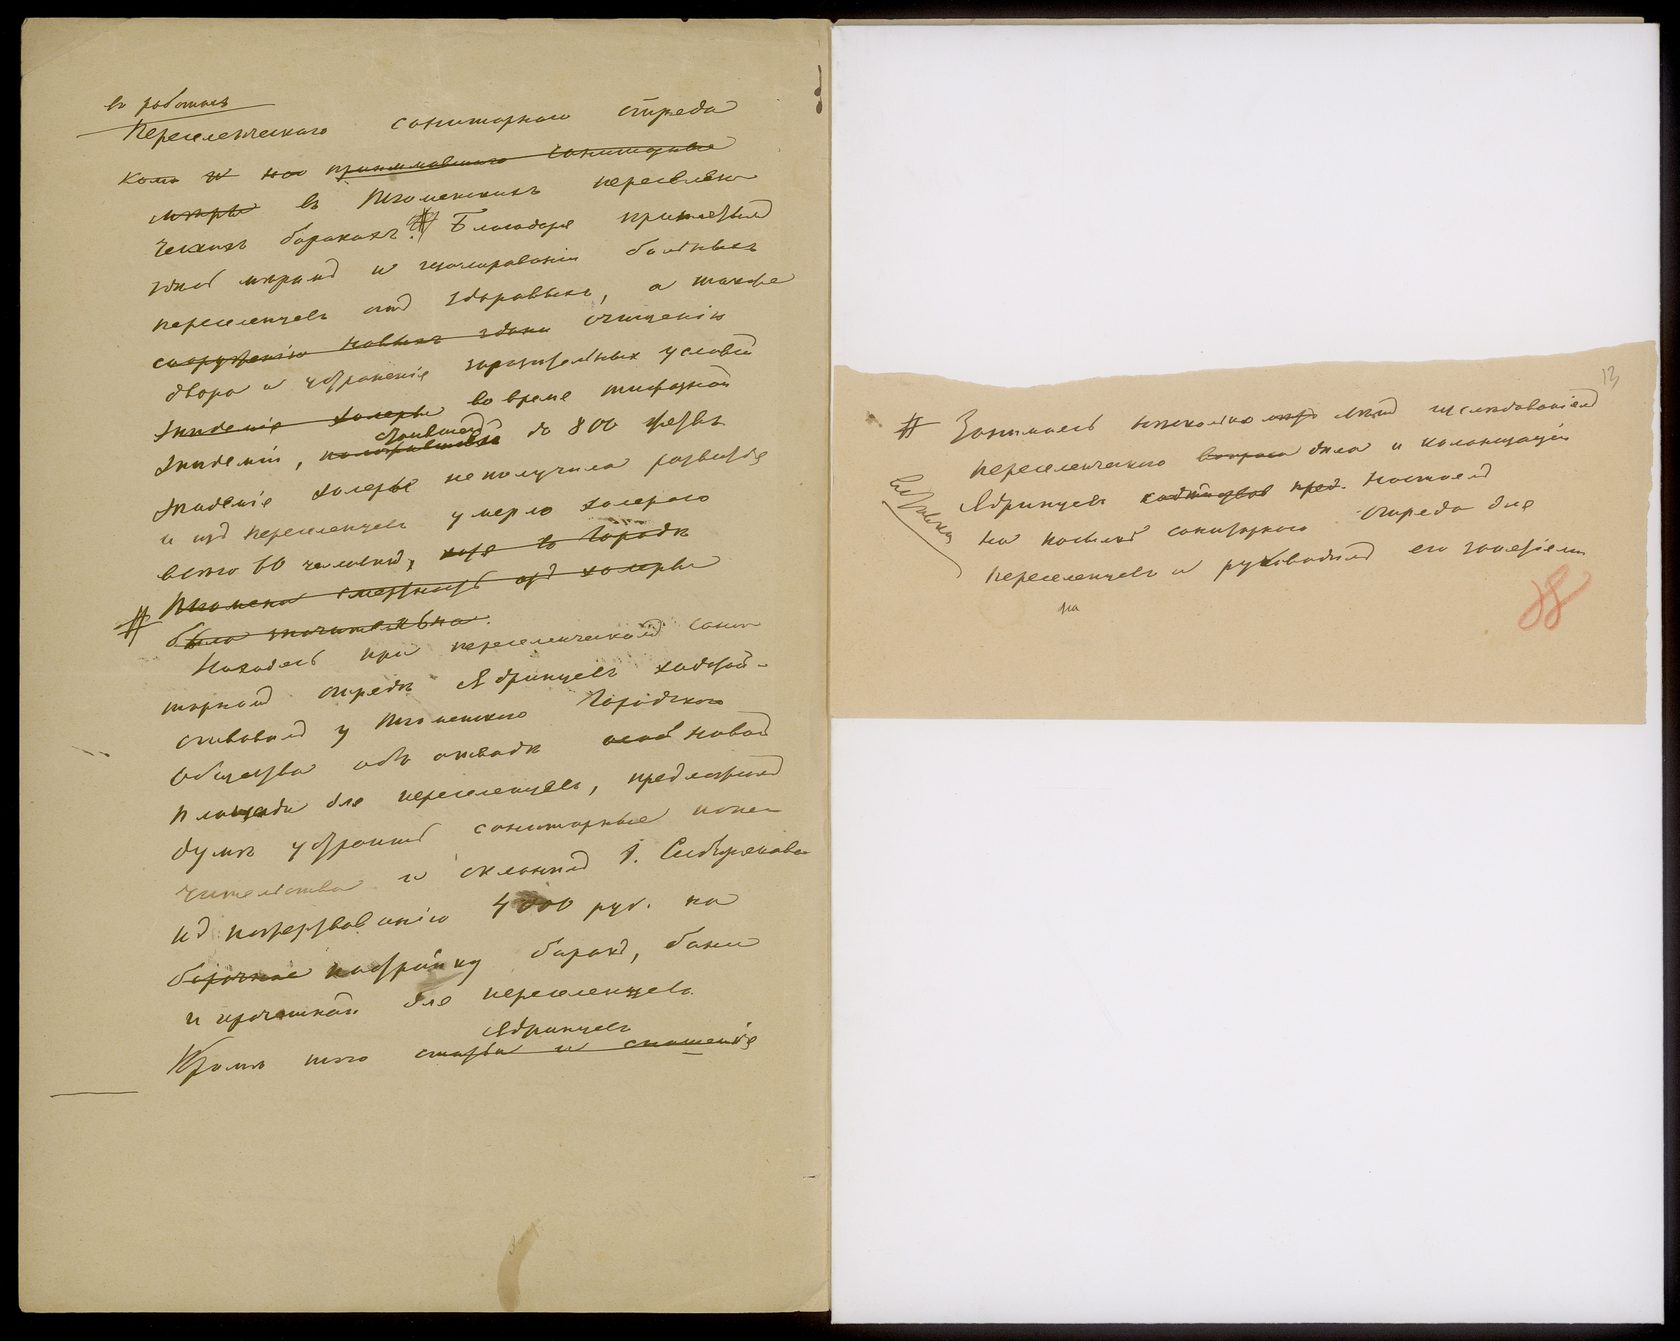 въ работахъ
Переселенческаго санитарнаго отряда
принимавшаго санитарныя
мѣры въ Тюменскихъ переселен
ческихъ баракахъ. # Благодаря принятымъ
мѣрамъ и изолированію больныхъ
переселенцевъ отъ здоровыхъ, а также
сооруженію новыхъ здан очищенію
двора и устраненіе заразительныхъ условій
Эпидемія холеры во время тифозной
эпидеміи, до 800 жертвъ
эпидемія холеры не получила развитія
и изъ переселенцевъ умерло холерою
всего 60 человѣкъ, хотя въ городѣ
# Тюмени смертность отъ холеры
была значительна.
Находясь при переселенческомъ сани
тарномъ отрядѣ Ядринцевъ ходатай-
ствовалъ у Тюменскаго Городского
Общества объ отводѣ новой
площади для переселенцевъ, предложилъ
думѣ устроить санитарные попе
чительства и склонилъ г. Сибирякова
къ пожертвованію 4000 руб. на
барачная постройку баракъ, бани
и прачешной для переселенцевъ.
Ядринцевъ
Кромѣ того статьи и сношенія
13
# Занимаясь нѣсколько лѣтъ изслѣдованіемъ
переселенческаго вопроса дѣла и колонизаціи
Ядринцевъ настоялъ
на посылкѣ санитарнаго отряда для
переселенцевъ и руководилъ его занятіями
на
38